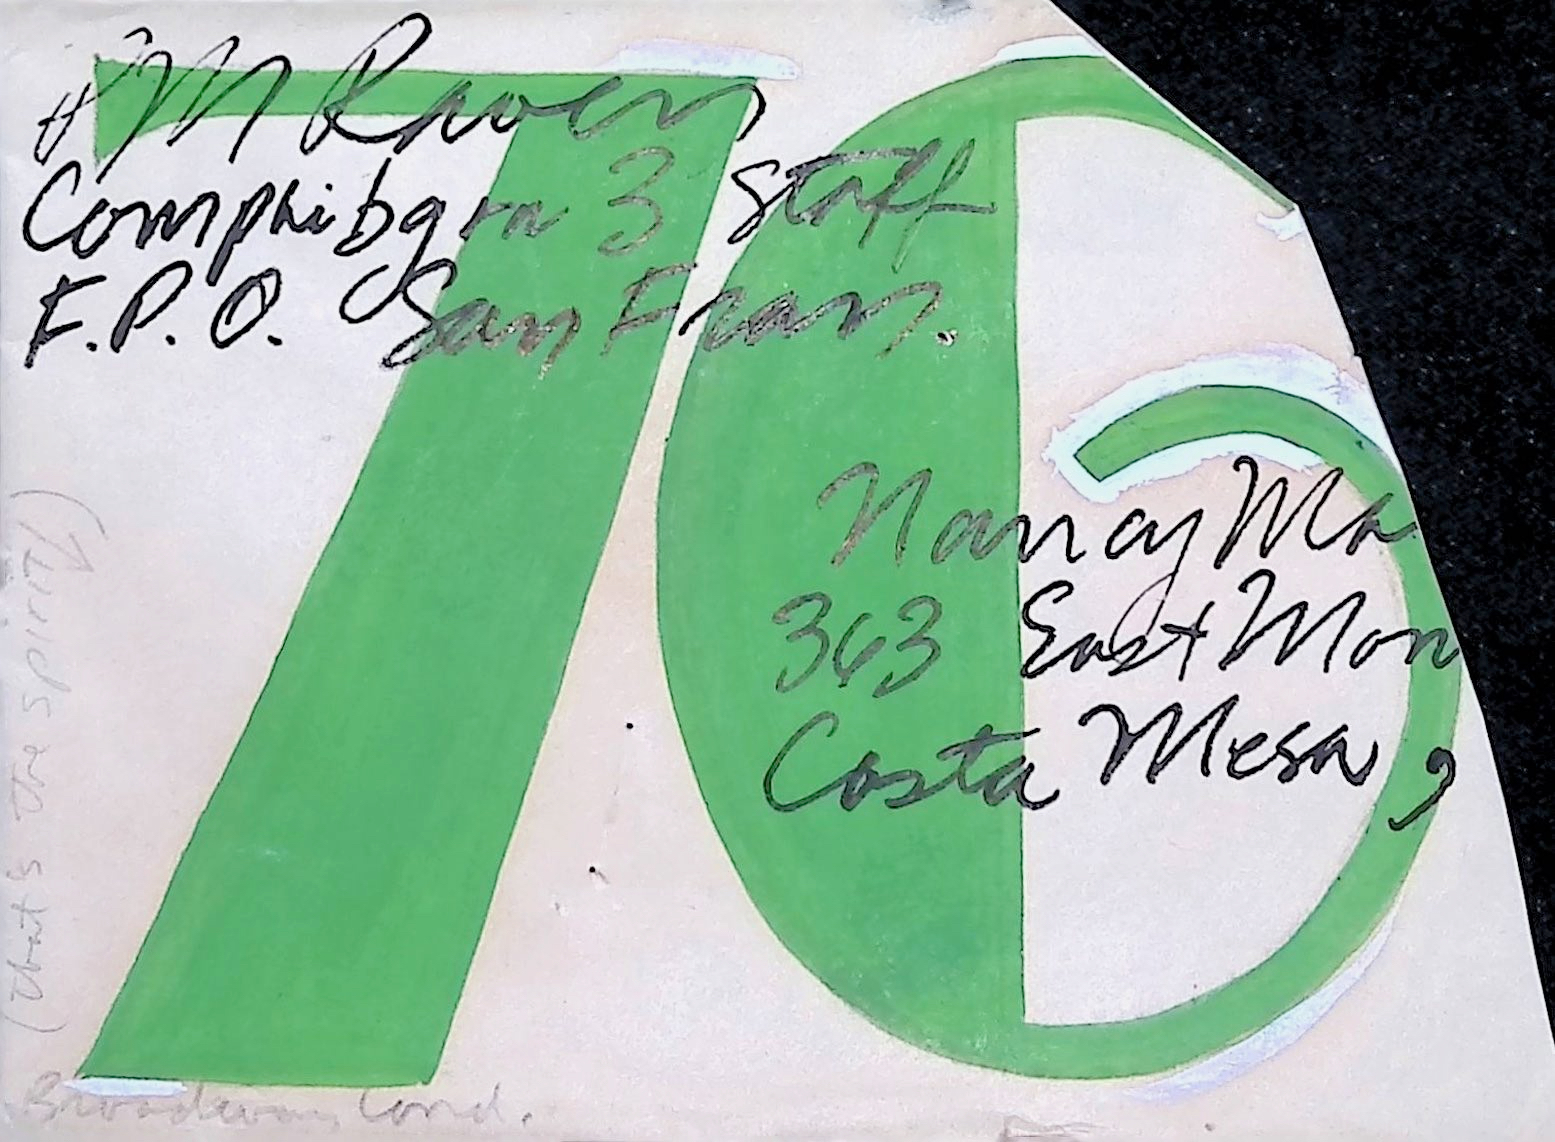 M Raven
Comphibgru 3 Staff
F.P.O. San Fran.
76
Nancy Ma
363 East Mon
Costa Mesa,
(that's the spirit)
Broadway Cond.